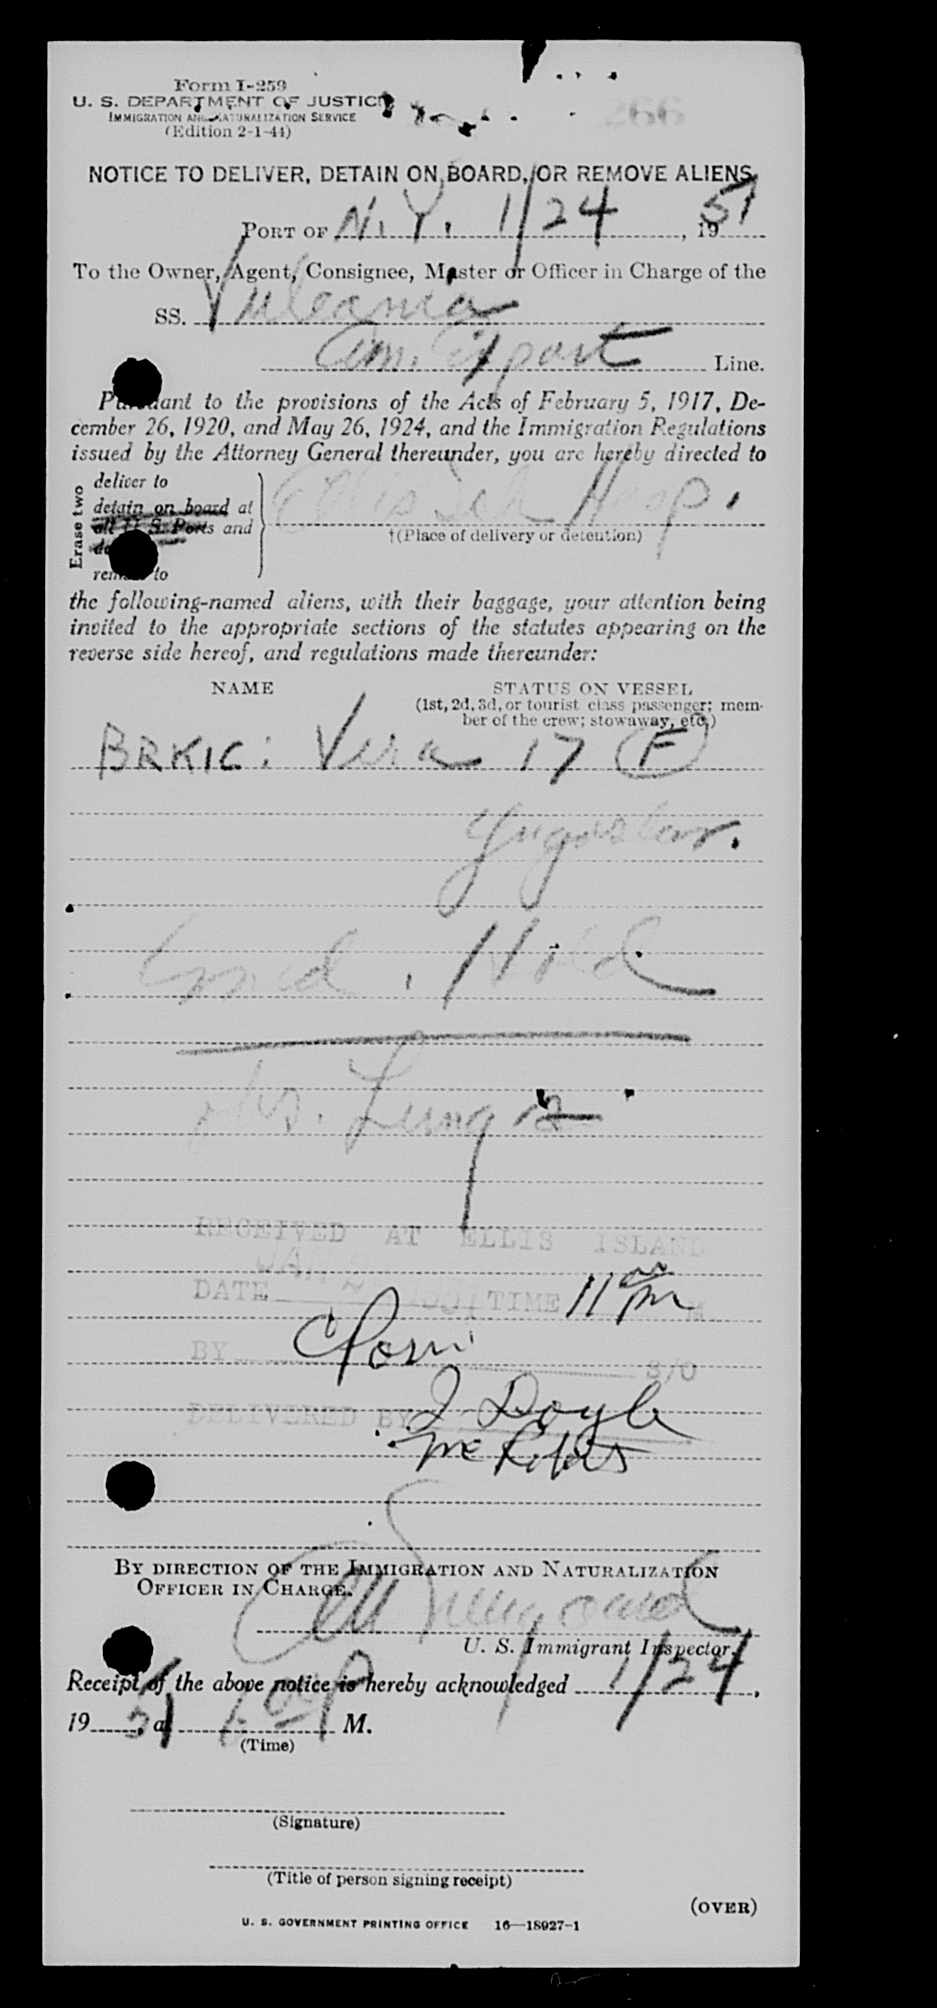 Form I-259
U. S. DEPARTMENT OF JUSTICE
IMMIGRATION AND NATURALIZATION SERVICE
(Edition 2-1-44)
266
NOTICE TO DELIVER, DETAIN ON BOARD, OR REMOVE ALIENS
PORT OF N.Y. 1/24, 1951
To the Owner, Agent, Consignee, Master or Officer in Charge of the
SS. Vulcania
Am. Export Line.
Pursuant to the provisions of the Acts of February 5, 1917, De-
cember 26, 1920, and May 26, 1924, and the Immigration Regulations
issued by the Attorney General thereunder, you are hereby directed to
Erase two
deliver to
detain on board at
all U. S. Ports and
remove to
Ellis Isld Hosp.
†(Place of delivery or detention)
the following-named aliens, with their baggage, your attention being
invited to the appropriate sections of the statutes appearing on the
reverse side hereof, and regulations made thereunder:
NAME STATUS ON VESSEL
(1st, 2d, 3d, or tourist class passenger; mem-
ber of the crew; stowaway, etc.)
BRKIC: Vera 17 (F)
Yugoslav.
Med. Hold
Lung
RECEIVED AT ELLIS ISLAND
DATE JAN 2 1951 TIME 11 M
BY S/O
DELIVERED BY J Doyle
BY DIRECTION OF THE IMMIGRATION AND NATURALIZATION
OFFICER IN CHARGE.
U. S. Immigrant Inspector.
Receipt of the above notice is hereby acknowledged 1/24,
19 51, at P M.
(Time)
(Signature)
(Title of person signing receipt)
(OVER)
U. S. GOVERNMENT PRINTING OFFICE 16—18927-1